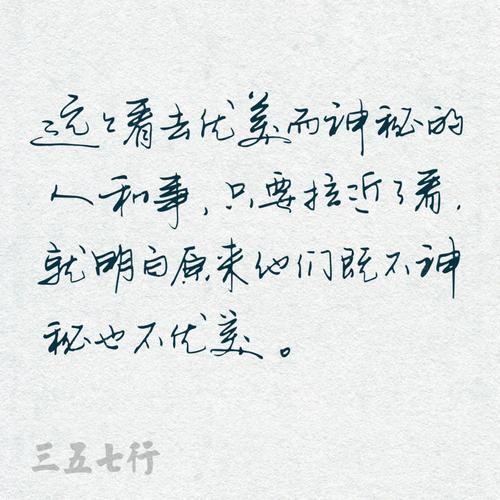 远远看去优美而神秘的
人和事，只要拉近了看，
就明白原来他们既不神
秘也不优美。
三五七行